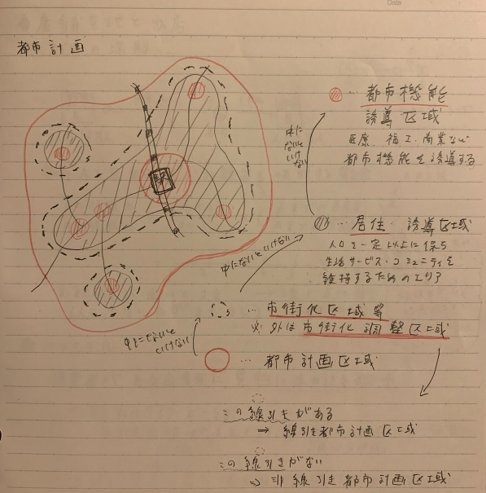 都市計画
駅
都市機能
誘導区域
医療、福祉、商業など
都市機能を誘導する
中にないといけない
居住誘導区域
人口を一定以上に保ち
生活サービス・コミュニティを
維持するためのエリア
中にないといけない
市街化区域等
※外は市街化調整区域
中にないといけない
都市計画区域
この線引きがある
→ 線引き都市計画区域
この線引きがない
⇒ 非線引き都市計画区域